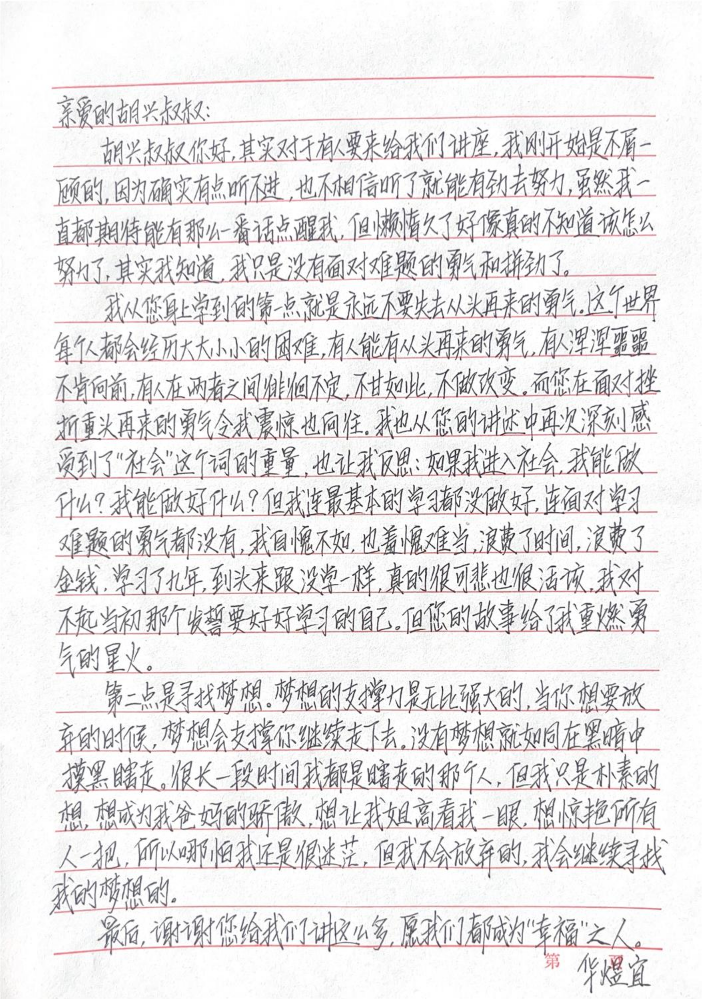 亲爱的胡兴叔叔：
胡兴叔叔你好，其实对于有人要来给我们讲座，我刚开始是不屑一
顾的，因为确实有点听不进，也不相信听了就能有劲去努力，虽然我一
直都期待能有那么一番话点醒我，但懒惰久了好像真的不知道该怎么
努力了，其实我知道，我只是没有面对难题的勇气和拼劲了。
我从您身上学到的第一点就是永远不要失去从头再来的勇气。这个世界
每个人都会经历大大小小的困难，有人能有从头再来的勇气，有人浑浑噩噩
不肯向前，有人在两者之间徘徊不定，不甘如此，不做改变。而您在面对挫
折重头再来的勇气令我震惊也向往。我也从您的讲述中再次深刻感
受到了“社会”这个词的重量，也让我反思：如果我进入社会，我能做
什么？我能做好什么？但我连最基本的学习都没做好，连面对学习
难题的勇气都没有，我自愧不如，也羞愧难当，浪费了时间，浪费了
金钱，学习了九年，到头来跟没学一样，真的很可悲也很活该。我对
不起当初那个发誓要好好学习的自己。但您的故事给了我重燃勇
气的星火。
第二点是寻找梦想。梦想的支撑力是无比强大的，当你想要放
弃的时候，梦想会支撑你继续走下去。没有梦想就如同在黑暗中
摸黑瞎走。很长一段时间我都是瞎走的那个人，但我只是朴素的
想，想成为我爸妈的骄傲，想让我姐高看我一眼，想惊艳所有
人一把，所以哪怕我还是很迷茫，但我不会放弃的，我会继续寻找
我的梦想的。
最后，谢谢您给我们讲这么多，愿我们都成为“幸福”之人。
第 页
华煜宜